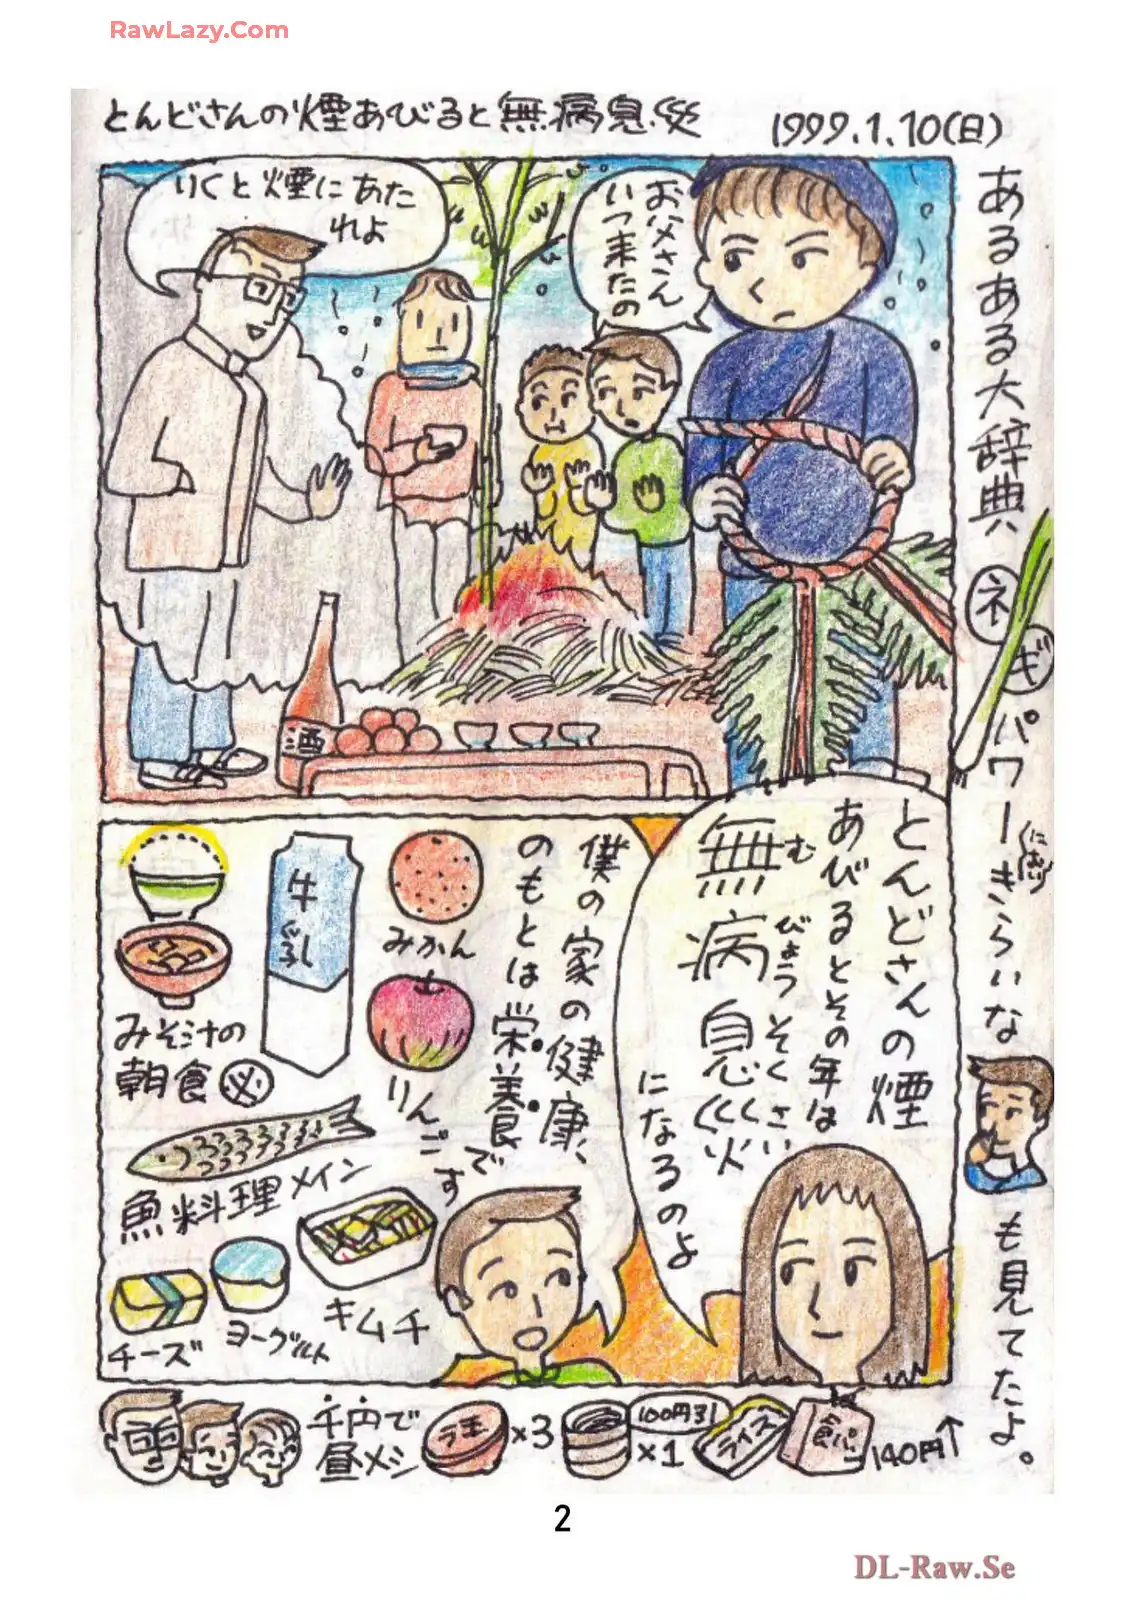 RawLazy.Com
とんどさんの煙あびると無病息災
1999.1.10(日)
あるある大辞典 ネギパワーきらいな
にむり
も見てたよ。
お父さん
いつ来たの
りくと煙にあた
れよ
酒
とんどさんの煙
あびるとその年は
無病息災
む びょう そくさい
になるのよ
僕の家の健康、
のもとは栄養食で
す
みかん
りんご
牛乳
みそ汁の
朝食 必
魚料理メイン
キムチ
ヨーグルト
チーズ
千円で
昼メシ
ラ王
×3
100円引
×1
ライス
食パン
140円↑
2
DL-Raw.Se